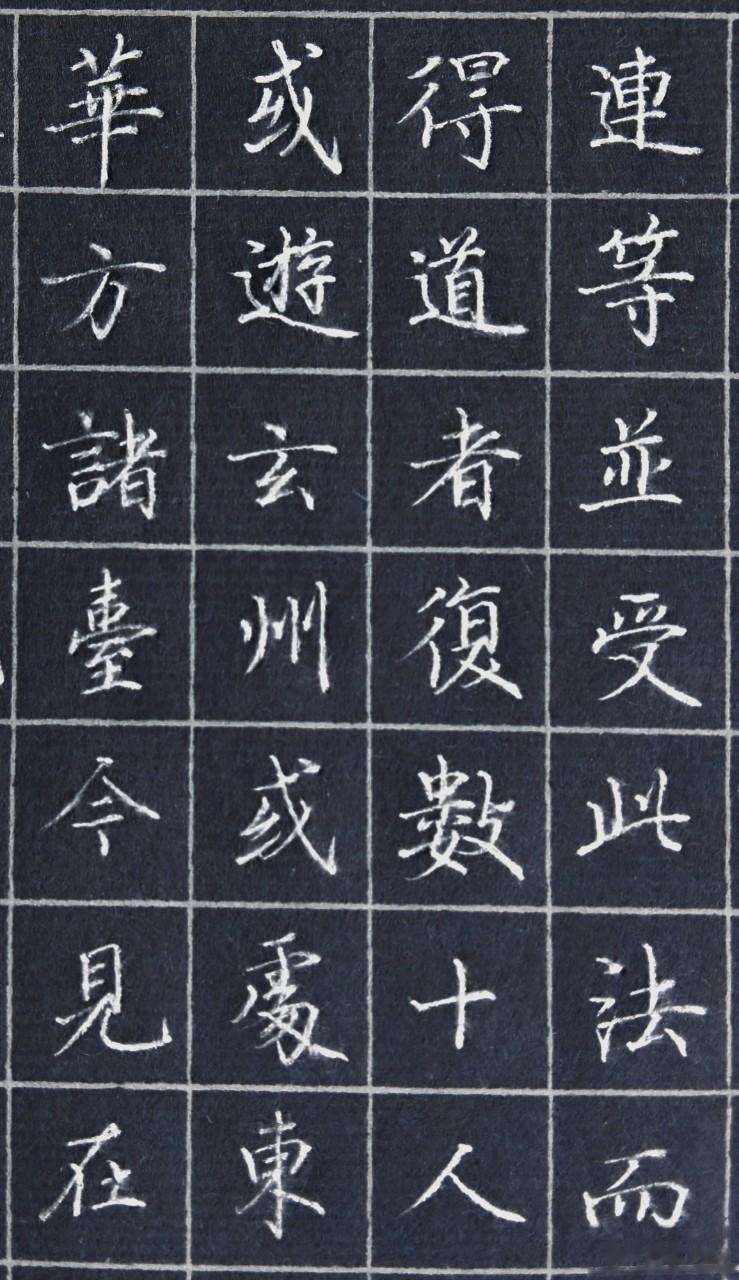 連等並受此法而
得道者復數十人
或遊玄州或處東
華方諸臺今見在